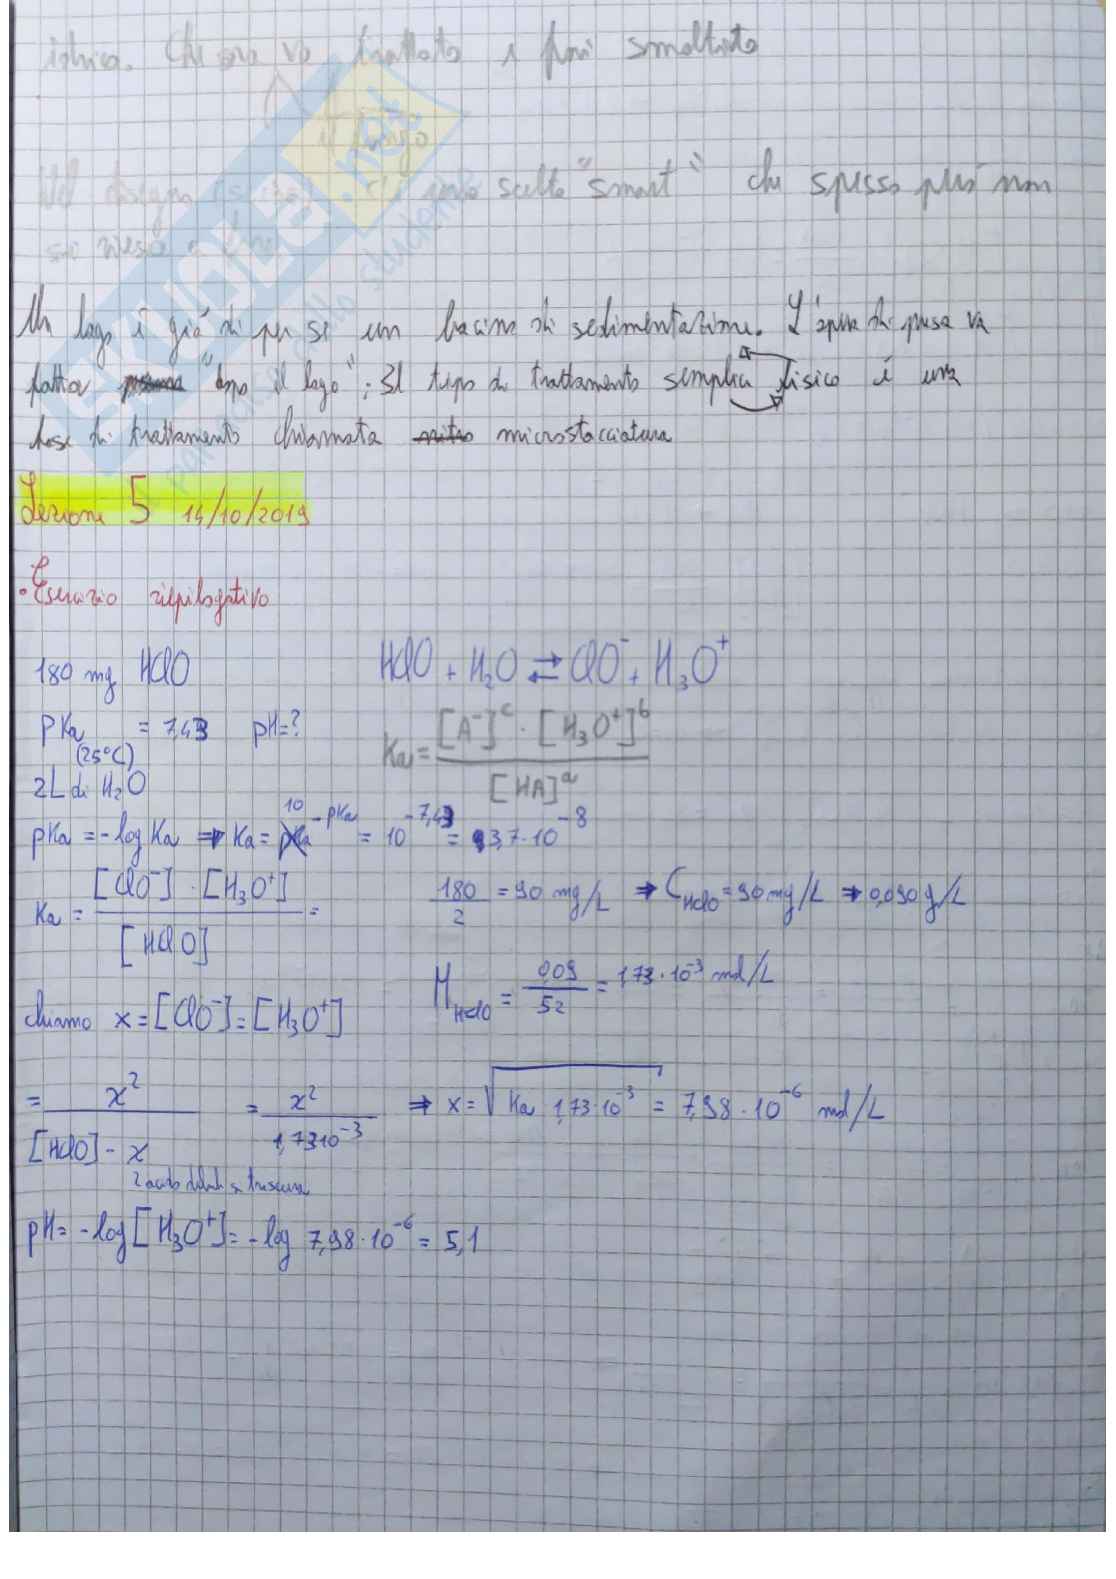 che ora va trattato e poi smaltito
il fango
Nel disegno ci sono scelte "smart" che spesso però non
si riesce a
Un lago è già di per sé un bacino di sedimentazione. L'opera di presa va
fatta "dopo il lago"; Il tipo di trattamento semplice fisico è una
fase di trattamento chiamata microstacciatura
Lezione 5 14/10/2019
• Esercizio riepilogativo
180 mg HClO
HClO + H₂O ⇄ ClO⁻ + H₃O⁺
pKa (25°C) = 7,43 pH=?
Ka = [A⁻]ᶜ · [H₃O⁺]ᵇ / [HA]ᵃ
2L di H₂O
pKa = -log Ka ⇒ Ka = 10^-pKa = 10^-7,43 = 3,7·10⁻⁸
Ka = [ClO⁻] · [H₃O⁺] / [HClO] =
180/2 = 90 mg/L ⇒ C HClO = 90 mg/L ⇒ 0,090 g/L
M HClO = 0,09/52 = 1,73·10⁻³ mol/L
chiamo x = [ClO⁻] = [H₃O⁺]
= x² / [HClO] - x = x² / 1,73·10⁻³ ⇒ x = √Ka 1,73·10⁻³ = 7,98·10⁻⁶ mol/L
pH = -log [H₃O⁺] = -log 7,98·10⁻⁶ = 5,1
SKUOLA.net